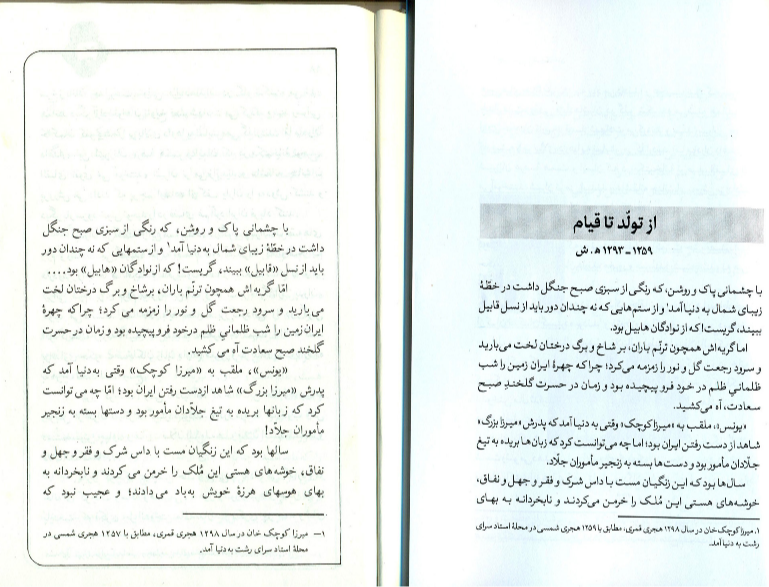 از تولّد تا قیام
۱۲۵۹ـ ۱۲۹۳ ه‍. ش
با چشمانی پاک و روشن، که رنگی از سبزی صبح جنگل داشت در خطّهٔ
زیبای شمال به دنیا آمد۱ و از ستم‌هایی که نه چندان دور باید از نسل قابیل
ببیند، گریست! که از نوادگان هابیل بود.
اما گریه‌اش همچون ترنّم باران، بر شاخ و برگ درختان لخت می‌بارید
و سرود رجعت گل و نور را زمزمه می‌کرد؛ چرا که چهرهٔ ایران زمین را شب
ظلمانیِ ظلم در خود فرو پیچیده بود و زمان در حسرت گلخندِ صبح
سعادت، آه می‌کشید.
«یونس»، ملقب به «میرزا کوچک» وقتی به دنیا آمد که پدرش «میرزا بزرگ»
شاهد از دست رفتن ایران بود؛ اما چه می‌توانست کرد که زبان‌ها بریده به تیغ
جلّادان مأمور بود و دست‌ها بسته به زنجیر مأموران جلّاد.
سال‌ها بود که این زنگیان مست با داس شرک و فقر و جهل و نفاق،
خوشه‌های هستی این مُلک را خرمن می‌کردند و نابخردانه به بهای
۱. میرزا کوچک خان در سال ۱۲۹۸ هجری قمری، مطابق با ۱۲۵۹ هجری شمسی در محلهٔ استاد سرای
رشت به دنیا آمد.
با چشمانی پاک و روشن، که رنگی از سبزی صبح جنگل
داشت در خطّهٔ زیبای شمال به‌دنیا آمد۱ و از ستمهایی که نه چندان دور
باید از نسل «قابیل» ببیند، گریست! که از نوادگان «هابیل» بود....
امّا گریه‌اش همچون ترنّم باران، برشاخ و برگ درختان لخت
می‌بارید و سرود رجعت گل و نور را زمزمه می‌کرد؛ چراکه چهرهٔ
ایران زمین را شب ظلمانی ظلم درخود فروپیچیده بود و زمان در حسرت
گلخند صبح سعادت آه می کشید.
«یونس»، ملقب به «میرزا کوچک» وقتی به‌دنیا آمد که
پدرش «میرزا بزرگ» شاهد ازدست رفتن ایران بود؛ امّا چه می‌توانست
کرد که زبانها بریده به تیغ جلّادان مأمور بود و دستها بسته به زنجیر
مأموران جلّاد!
سالها بود که این زنگیان مست با داس شرک و فقر و جهل و
نفاق، خوشه‌های هستی این مُلک را خرمن می کردند و نابخردانه به
بهای هوسهای هرزهٔ خویش به‌باد می‌دادند؛ و عجیب نبود که
۱— میرزا کوچک خان در سال ۱۲۹۸ هجری قمری، مطابق با ۱۲۵۷ هجری شمسی در
محلهٔ استاد سرای رشت به‌دنیا آمد.